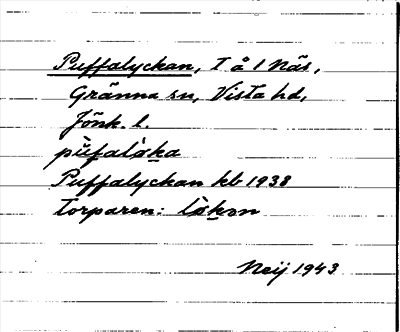 Puffalyckan, T å 1 Näs,
Gränna sn, Vista hd,
Jönk. l.
pu̇̀falỳka
Puffalyckan kb 1938
torparen: lỳkən
Neij 1943